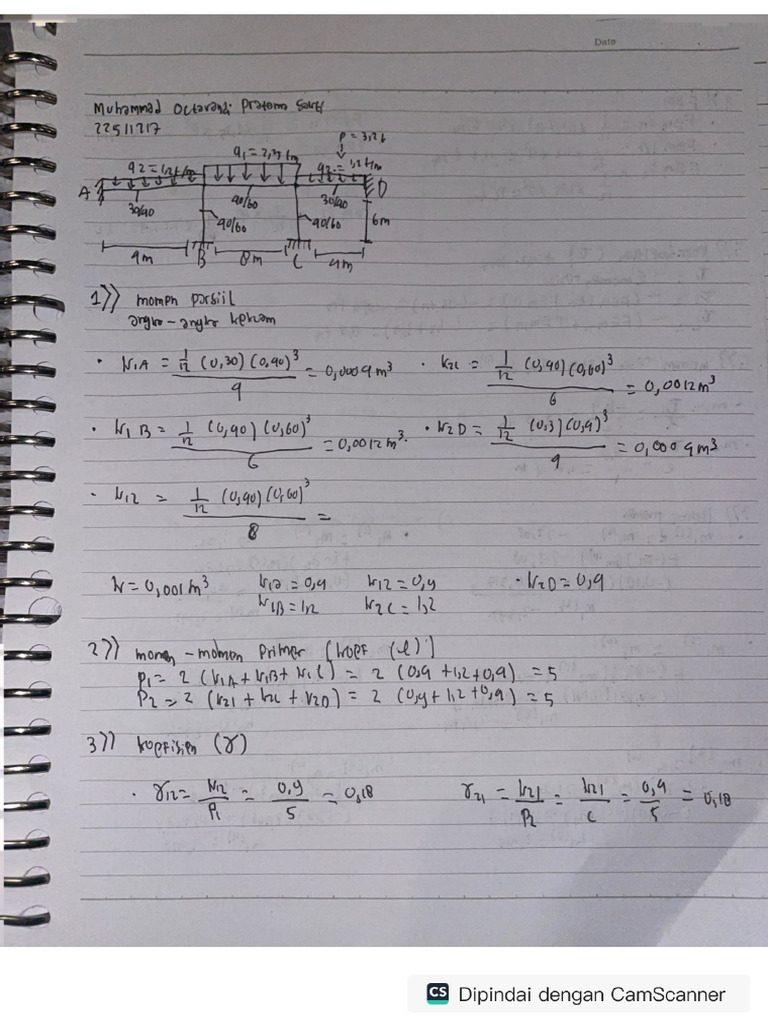 Date
Muhammad Octavandi Pratama Sakti
22511217
P = 3,2 t
q2 = 1,2 t/m q1 = 2,3 t/m q2 = 1,2 t/m
A D
30/40 40/60 30/40
40/60 40/60 6m
4m B 8m C 4m
1)) momen parsiil
angka-angka kekuan
• K1A = 1/12 (0,30) (0,40)³ / 4 = 0,0004 m³ • K2C = 1/12 (0,40) (0,60)³ / 6 = 0,0012 m³
• K1B = 1/12 (0,40) (0,60)³ / 6 = 0,0012 m³. • K2D = 1/12 (0,3) (0,4)³ / 4 = 0,0004 m³
• K12 = 1/12 (0,40) (0,60)³ / 8 =
K = 0,001 m³ K1A = 0,4 K12 = 0,9 • K2D = 0,4
K1B = 1,2 K2C = 1,2
2)) momen - momen Primer [koef (ℓ)]
P1 = 2 (K1A + K1B + K1C) = 2 (0,4 + 1,2 + 0,9) = 5
P2 = 2 (K21 + K2C + K2D) = 2 (0,9 + 1,2 + 0,4) = 5
3)) koefisien (γ)
• γ12 = K12/P1 = 0,9/5 = 0,18 γ21 = K21/P2 = K21/C = 0,9/5 = 0,18
CS Dipindai dengan CamScanner